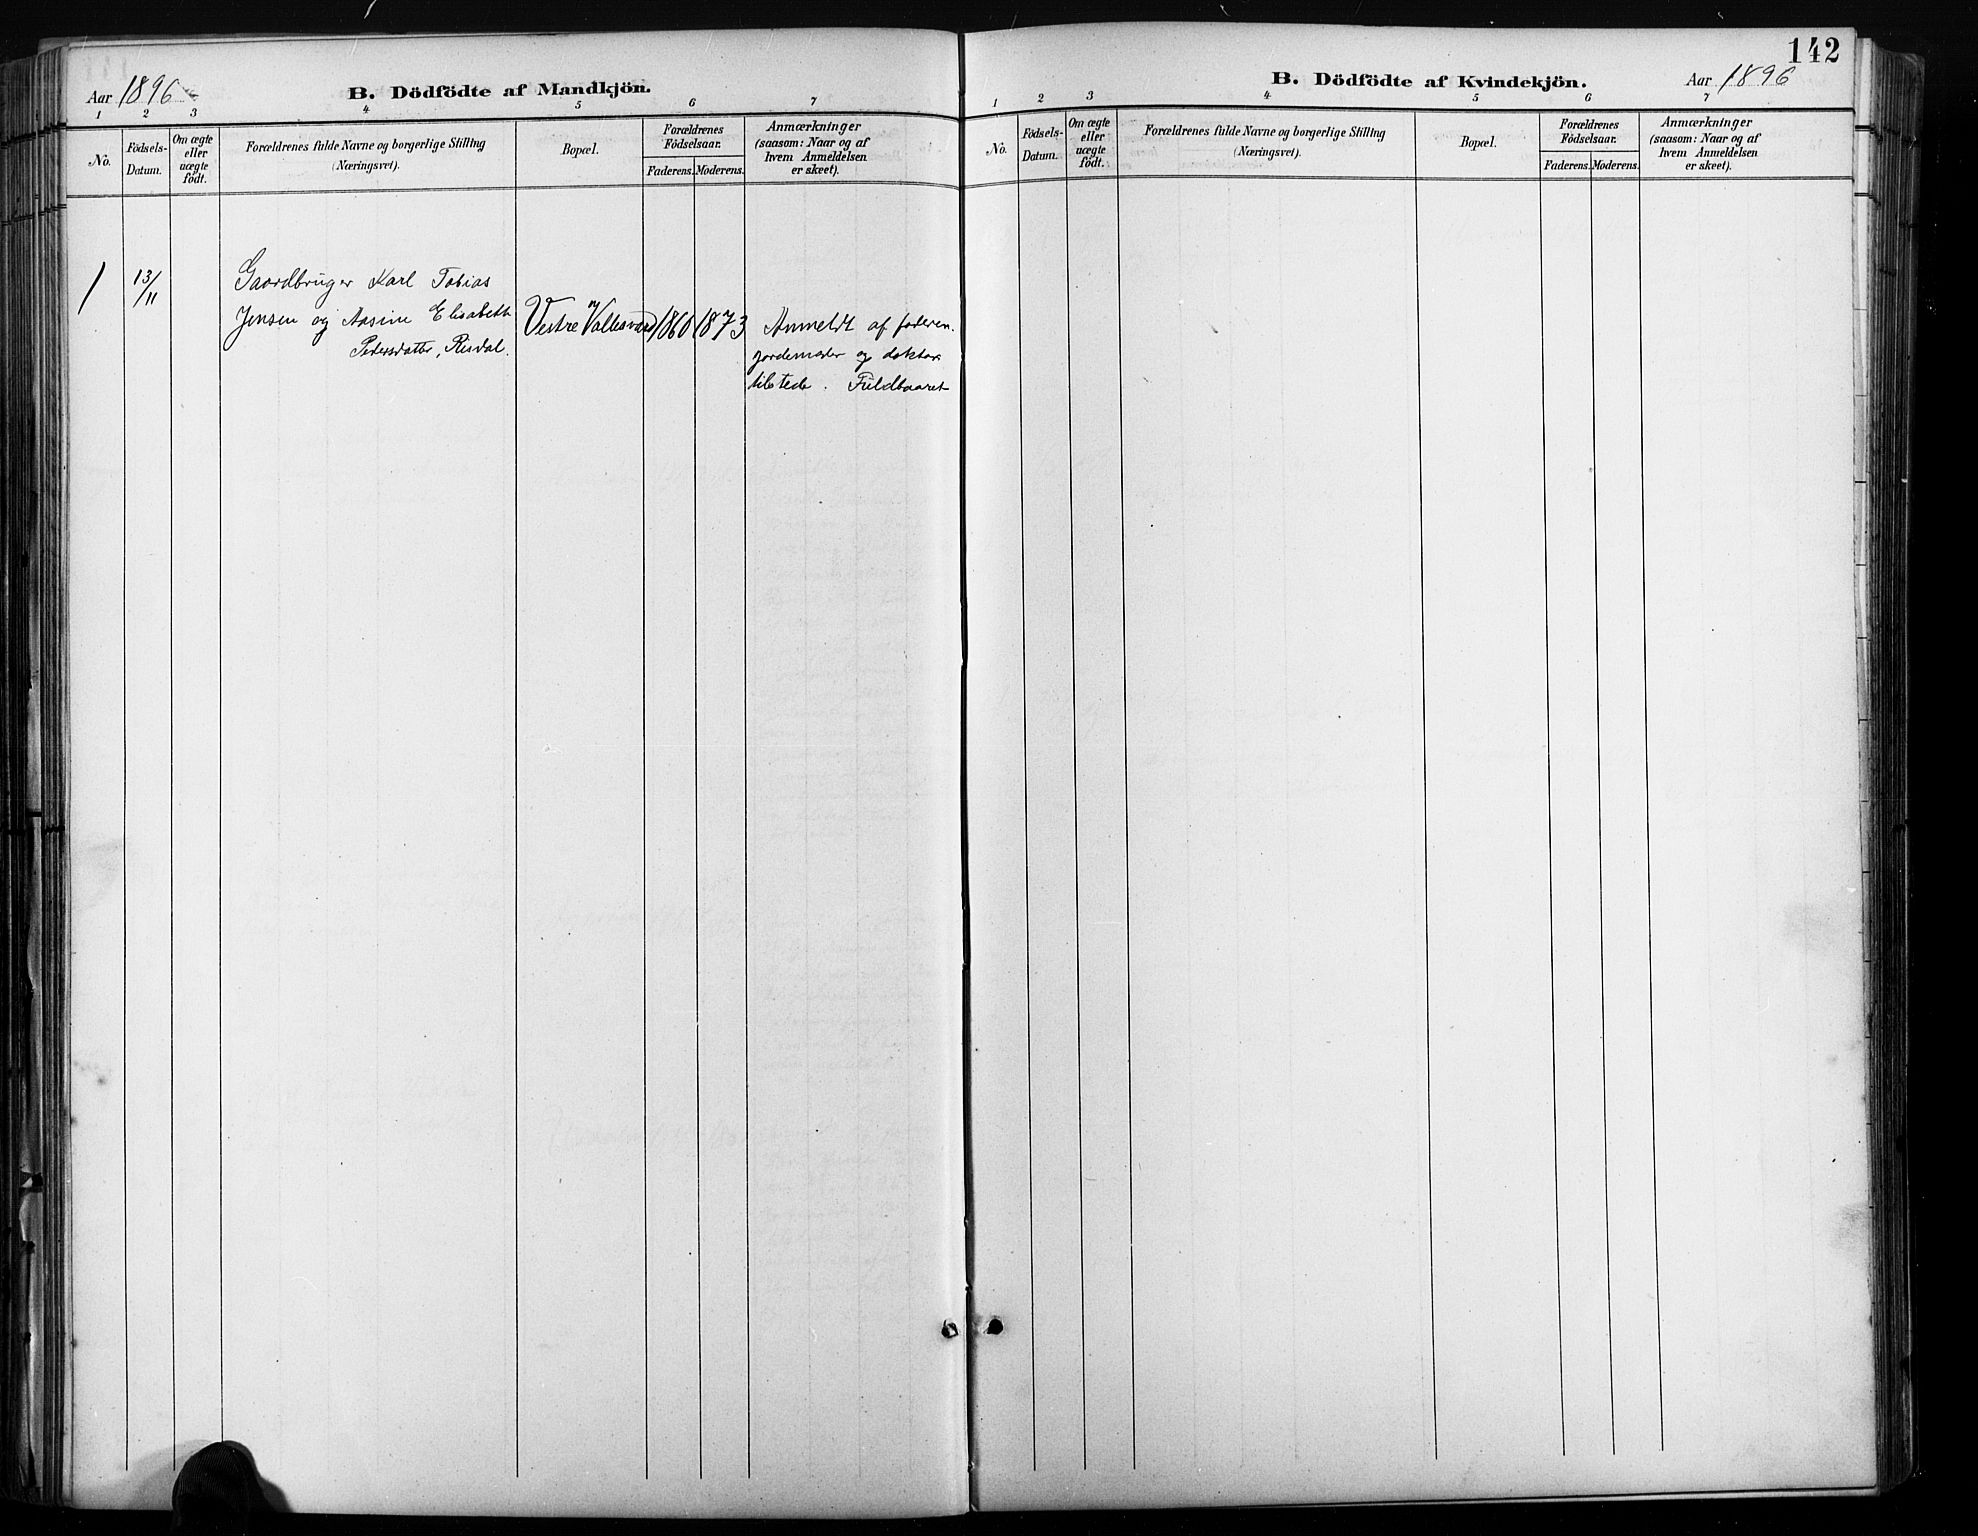 142
Aar 1896
B. Dödfödte af Mandkjön.
1 2 3 4 5 6 7
No.
Födsels-
Datum.
Om ægte
eller
uægte
födt.
Forældrenes fulde Navne og borgerlige Stilling
(Næringsvei).
Bopæl.
Forældrenes
Födselsaar.
Faderens. Moderens.
Anmærkninger
(saasom: Naar og af
hvem Anmeldelsen
er skeet).
1 13/11
Gaardbruger Karl Tobias
Jensen og Aasine Elisabeth
Pedersdatter, Risdal.
Vestre Vallesværd 1860 1873
Anmeldt af faderen.
jordemoder og doktor
tilstede. Fuldbaaret
B. Dödfödte af Kvindekjön.
Aar 1896
1 2 3 4 5 6 7
No.
Födsels-
Datum.
Om ægte
eller
uægte
födt.
Forældrenes fulde Navne og borgerlige Stilling
(Næringsvei).
Bopæl.
Forældrenes
Födselsaar.
Faderens. Moderens.
Anmærkninger
(saasom: Naar og af
hvem Anmeldelsen
er skeet).